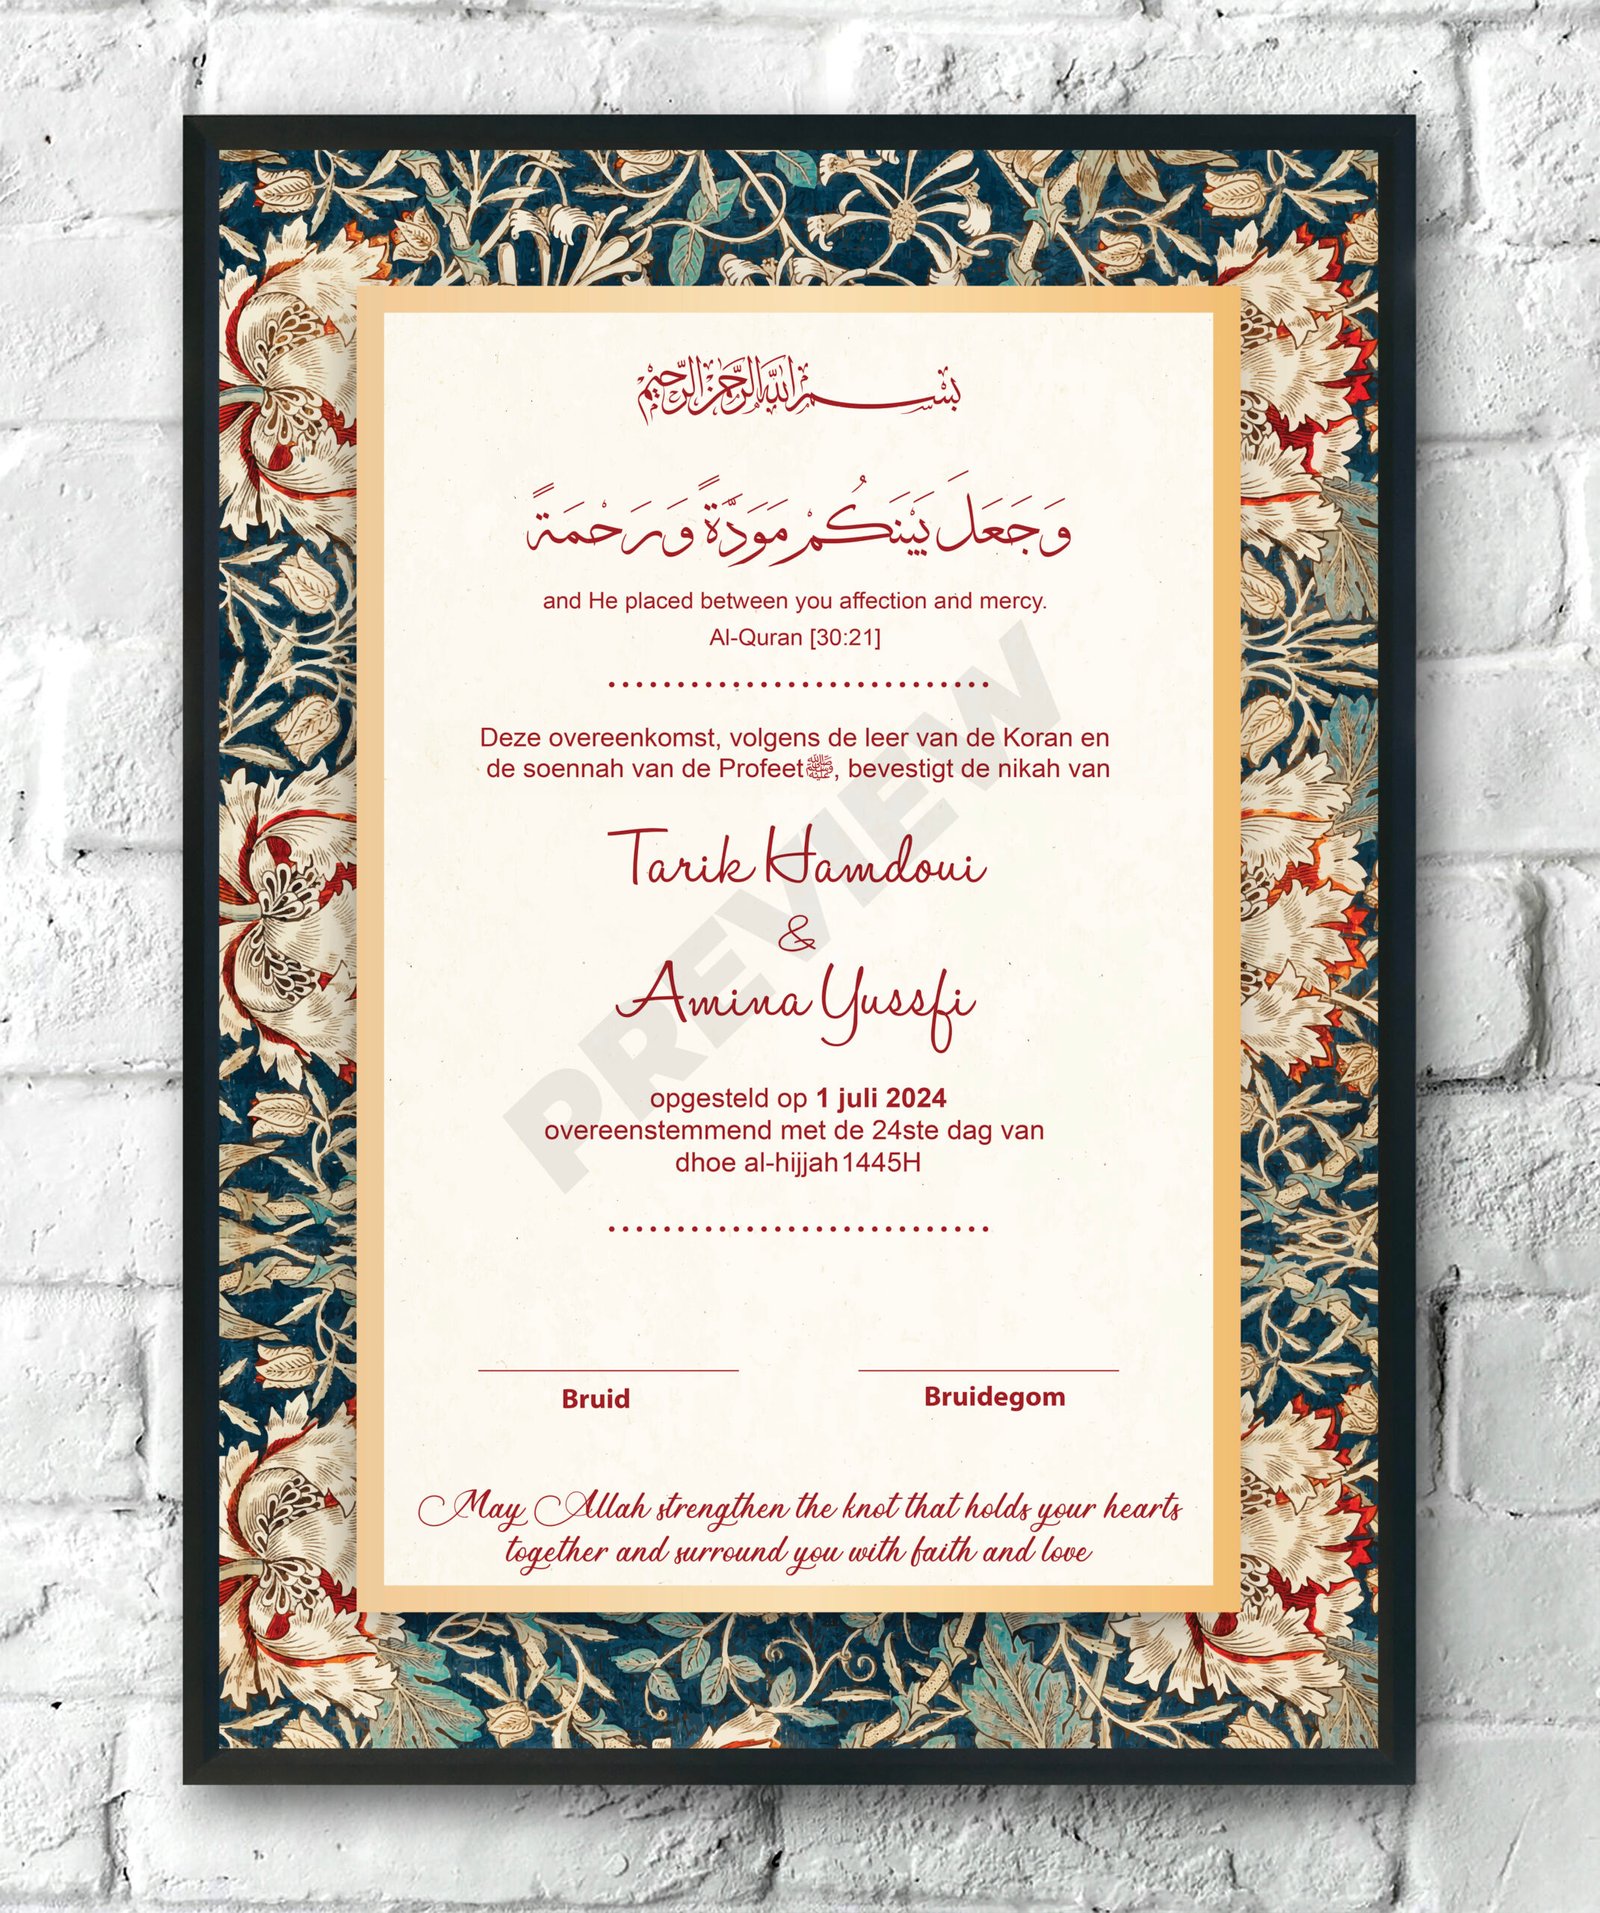 بِسْمِ اللهِ الرَّحْمٰنِ الرَّحِيْمِ
وَجَعَلَ بَيْنَكُمْ مَوَدَّةً وَرَحْمَةً
and He placed between you affection and mercy.
Al-Quran [30:21]
Deze overeenkomst, volgens de leer van de Koran en
de soennah van de Profeetﷺ, bevestigt de nikah van
Tarik Hamdoui
&
Amina Yussfi
opgesteld op 1 juli 2024
overeenstemmend met de 24ste dag van
dhoe al-hijjah 1445H
Bruid
Bruidegom
May Allah strengthen the knot that holds your hearts
together and surround you with faith and love
PREVIEW